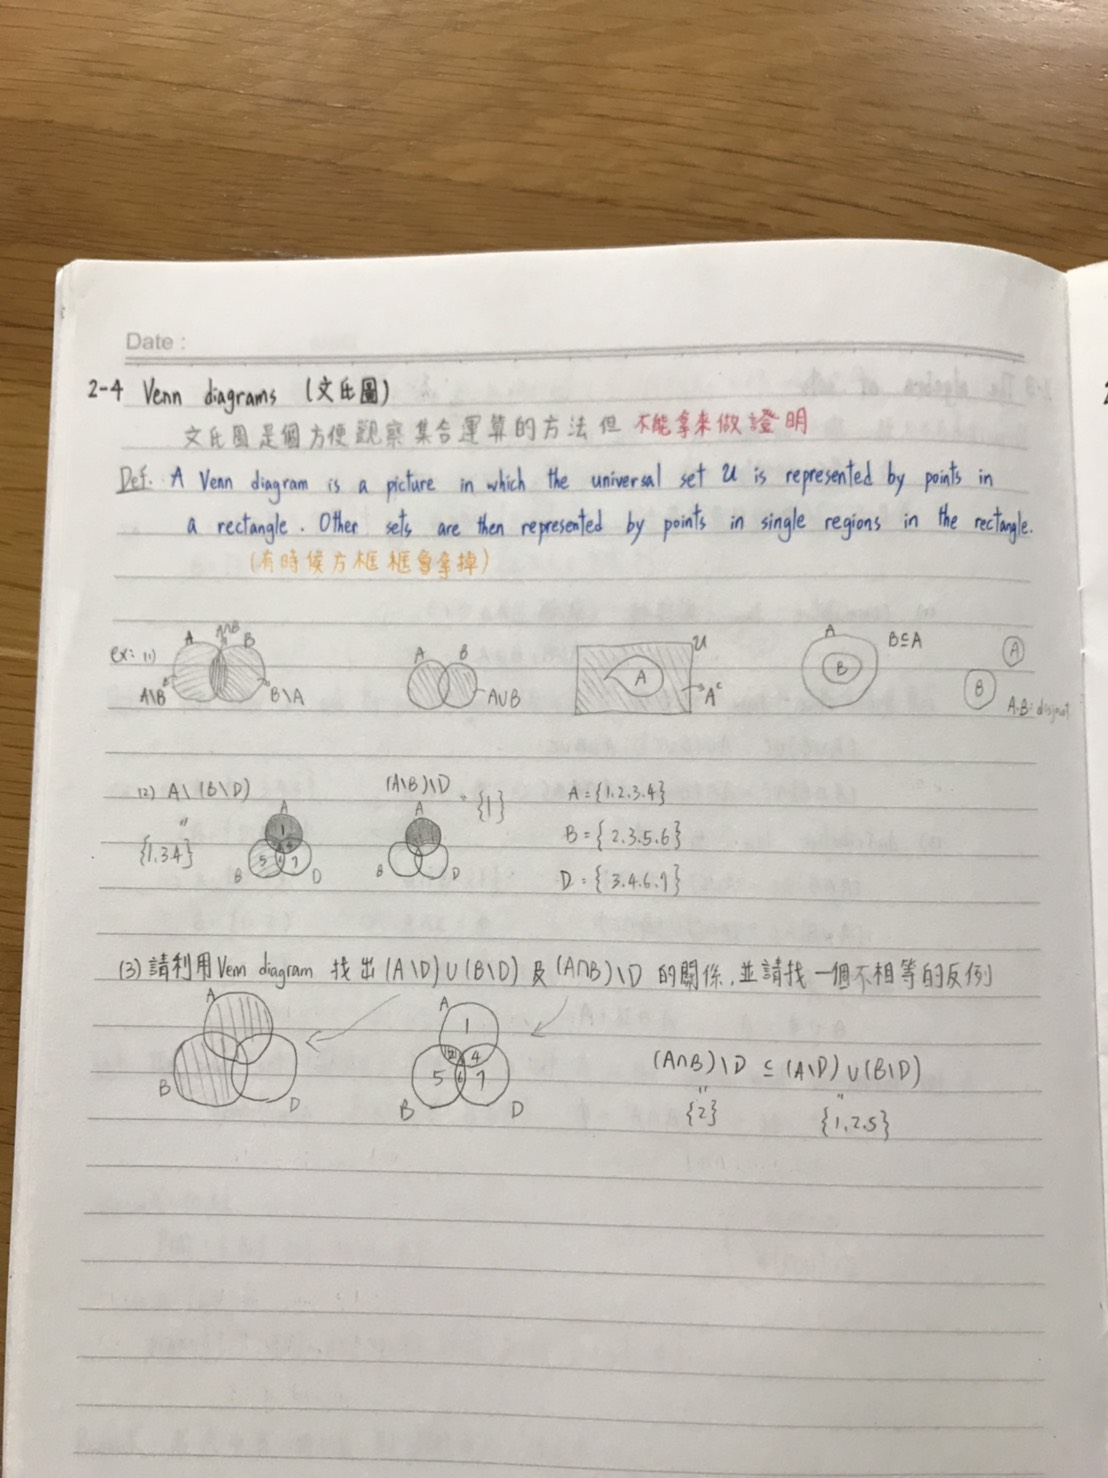 Date :
2-4 Venn diagrams (文氏圖)
文氏圖是個方便觀察集合運算的方法但 不能拿來做證明
Def. A Venn diagram is a picture in which the universal set U is represented by points in
a rectangle. Other sets are then represented by points in single regions in the rectangle.
(有時候方框框會拿掉)
ex: (1) A A∩B B A\B B\A
A B A∪B
A U A^c
A B B⊆A
A B A.B: disjoint
(2) A\(B\D) (A\B)\D = {1} A={1.2.3.4}
" A 1 B 5 7 D A B D B={2.3.5.6}
{1.3.4} D={3.4.6.7}
(3) 請利用Venn diagram 找出 (A\D)∪(B\D) 及 (A∩B)\D 的關係,並請找一個不相等的反例
A B D
A 1 2 4 5 6 7 B D
(A∩B)\D ⊆ (A\D)∪(B\D)
" "
{2} {1.2.5}